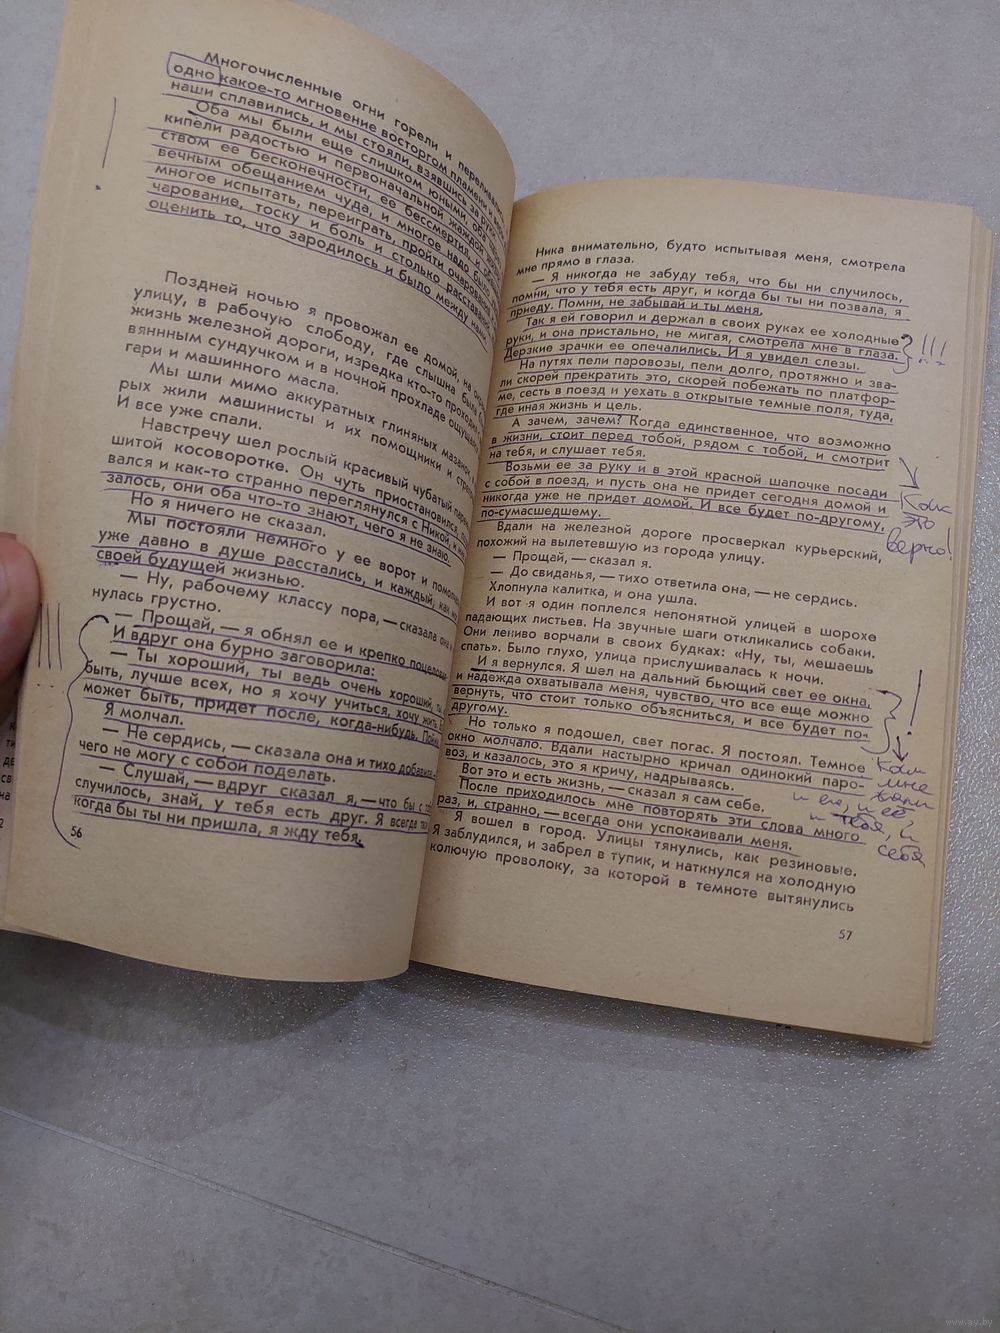 Многочисленные огни горели и переливались
одно какое-то мгновение восторгом пламени
наши сплавились, и мы стояли, взявшись за руки
Оба мы были еще слишком юными, оба
кипели радостью и первоначальной жаждой
ством ее бесконечности, ее бессмертия, и
вечным обещанием чуда, и многое надо было
многое испытать, переиграть, пройти очарование
чарование, тоску и боль и столько расставаний
оценить то, что зародилось и было между нами.
Поздней ночью я провожал ее домой, на
улицу, в рабочую слободу, где слышна была
жизнь железной дороги, изредка кто-то проходил
вянным сундучком и в ночной прохладе
гари и машинного масла.
Мы шли мимо аккуратных глиняных мазанок
рых жили машинисты и их помощники и
И все уже спали.
Навстречу шел рослый красивый чубатый
шитой косоворотке. Он чуть приостановился,
вался и как-то странно переглянулся с Никой, и
залось, они оба что-то знают, чего я не знаю.
Но я ничего не сказал.
Мы постояли немного у ее ворот и
уже давно в душе расстались, и каждый, как
своей будущей жизнью.
— Ну, рабочему классу пора, — сказала она и
нулась грустно.
— Прощай, — я обнял ее и крепко поцеловал
И вдруг она бурно заговорила:
— Ты хороший, ты ведь очень хороший,
быть, лучше всех, но я хочу учиться, хочу жить.
может быть, придет после, когда-нибудь.
Я молчал.
— Не сердись, — сказала она и тихо
чего не могу с собой поделать.
— Слушай, — вдруг сказал я, — что бы с
случилось, знай, у тебя есть друг. Я всегда
когда бы ты ни пришла, я жду тебя.
56
Ника внимательно, будто испытывая меня, смотрела
мне прямо в глаза.
— Я никогда не забуду тебя, что бы ни случилось,
помни, что у тебя есть друг, и когда бы ты ни позвала, я
приеду. Помни, не забывай и ты меня,
Так я ей говорил и держал в своих руках ее холодные
руки, и она пристально, не мигая, смотрела мне в глаза.
Дерзкие зрачки ее опечалились. И я увидел слезы.
!!!
На путях пели паровозы, пели долго, протяжно и зва-
ли скорей прекратить это, скорей побежать по платфор-
ме, сесть в поезд и уехать в открытые темные поля, туда,
где иная жизнь и цель.
А зачем, зачем? Когда единственное, что возможно
в жизни, стоит перед тобой, рядом с тобой, и смотрит
на тебя, и слушает тебя.
Возьми ее за руку и в этой красной шапочке посади
с собой в поезд, и пусть она не придет сегодня домой и
никогда уже не придет домой. И все будет по-другому,
по-сумасшедшему.
Как
это
верно!
Вдали на железной дороге просверкал курьерский,
похожий на вылетевшую из города улицу.
— Прощай, — сказал я.
— До свиданья, — тихо ответила она, — не сердись.
Хлопнула калитка, и она ушла.
И вот я один поплелся непонятной улицей в шорохе
падающих листьев. На звучные шаги откликались собаки.
Они лениво ворчали в своих будках: «Ну, ты, мешаешь
спать». Было глухо, улица прислушивалась к ночи.
И я вернулся. Я шел на дальний бьющий свет ее окна,
и надежда охватывала меня, чувство, что все еще можно
вернуть, что стоит только объясниться, и все будет по-
другому.
Но только я подошел, свет погас. Я постоял. Темное
окно молчало. Вдали настырно кричал одинокий паро-
воз, и казалось, это я кричу, надрываясь.
Вот это и есть жизнь, — сказал я сам себе.
После приходилось мне повторять эти слова много
раз, и, странно, — всегда они успокаивали меня.
!
мне
и его, и ее,
и тебя, и
себя
Я вошел в город. Улицы тянулись, как резиновые.
Я заблудился, и забрел в тупик, и наткнулся на холодную
колючую проволоку, за которой в темноте вытянулись
57
www.ay.by